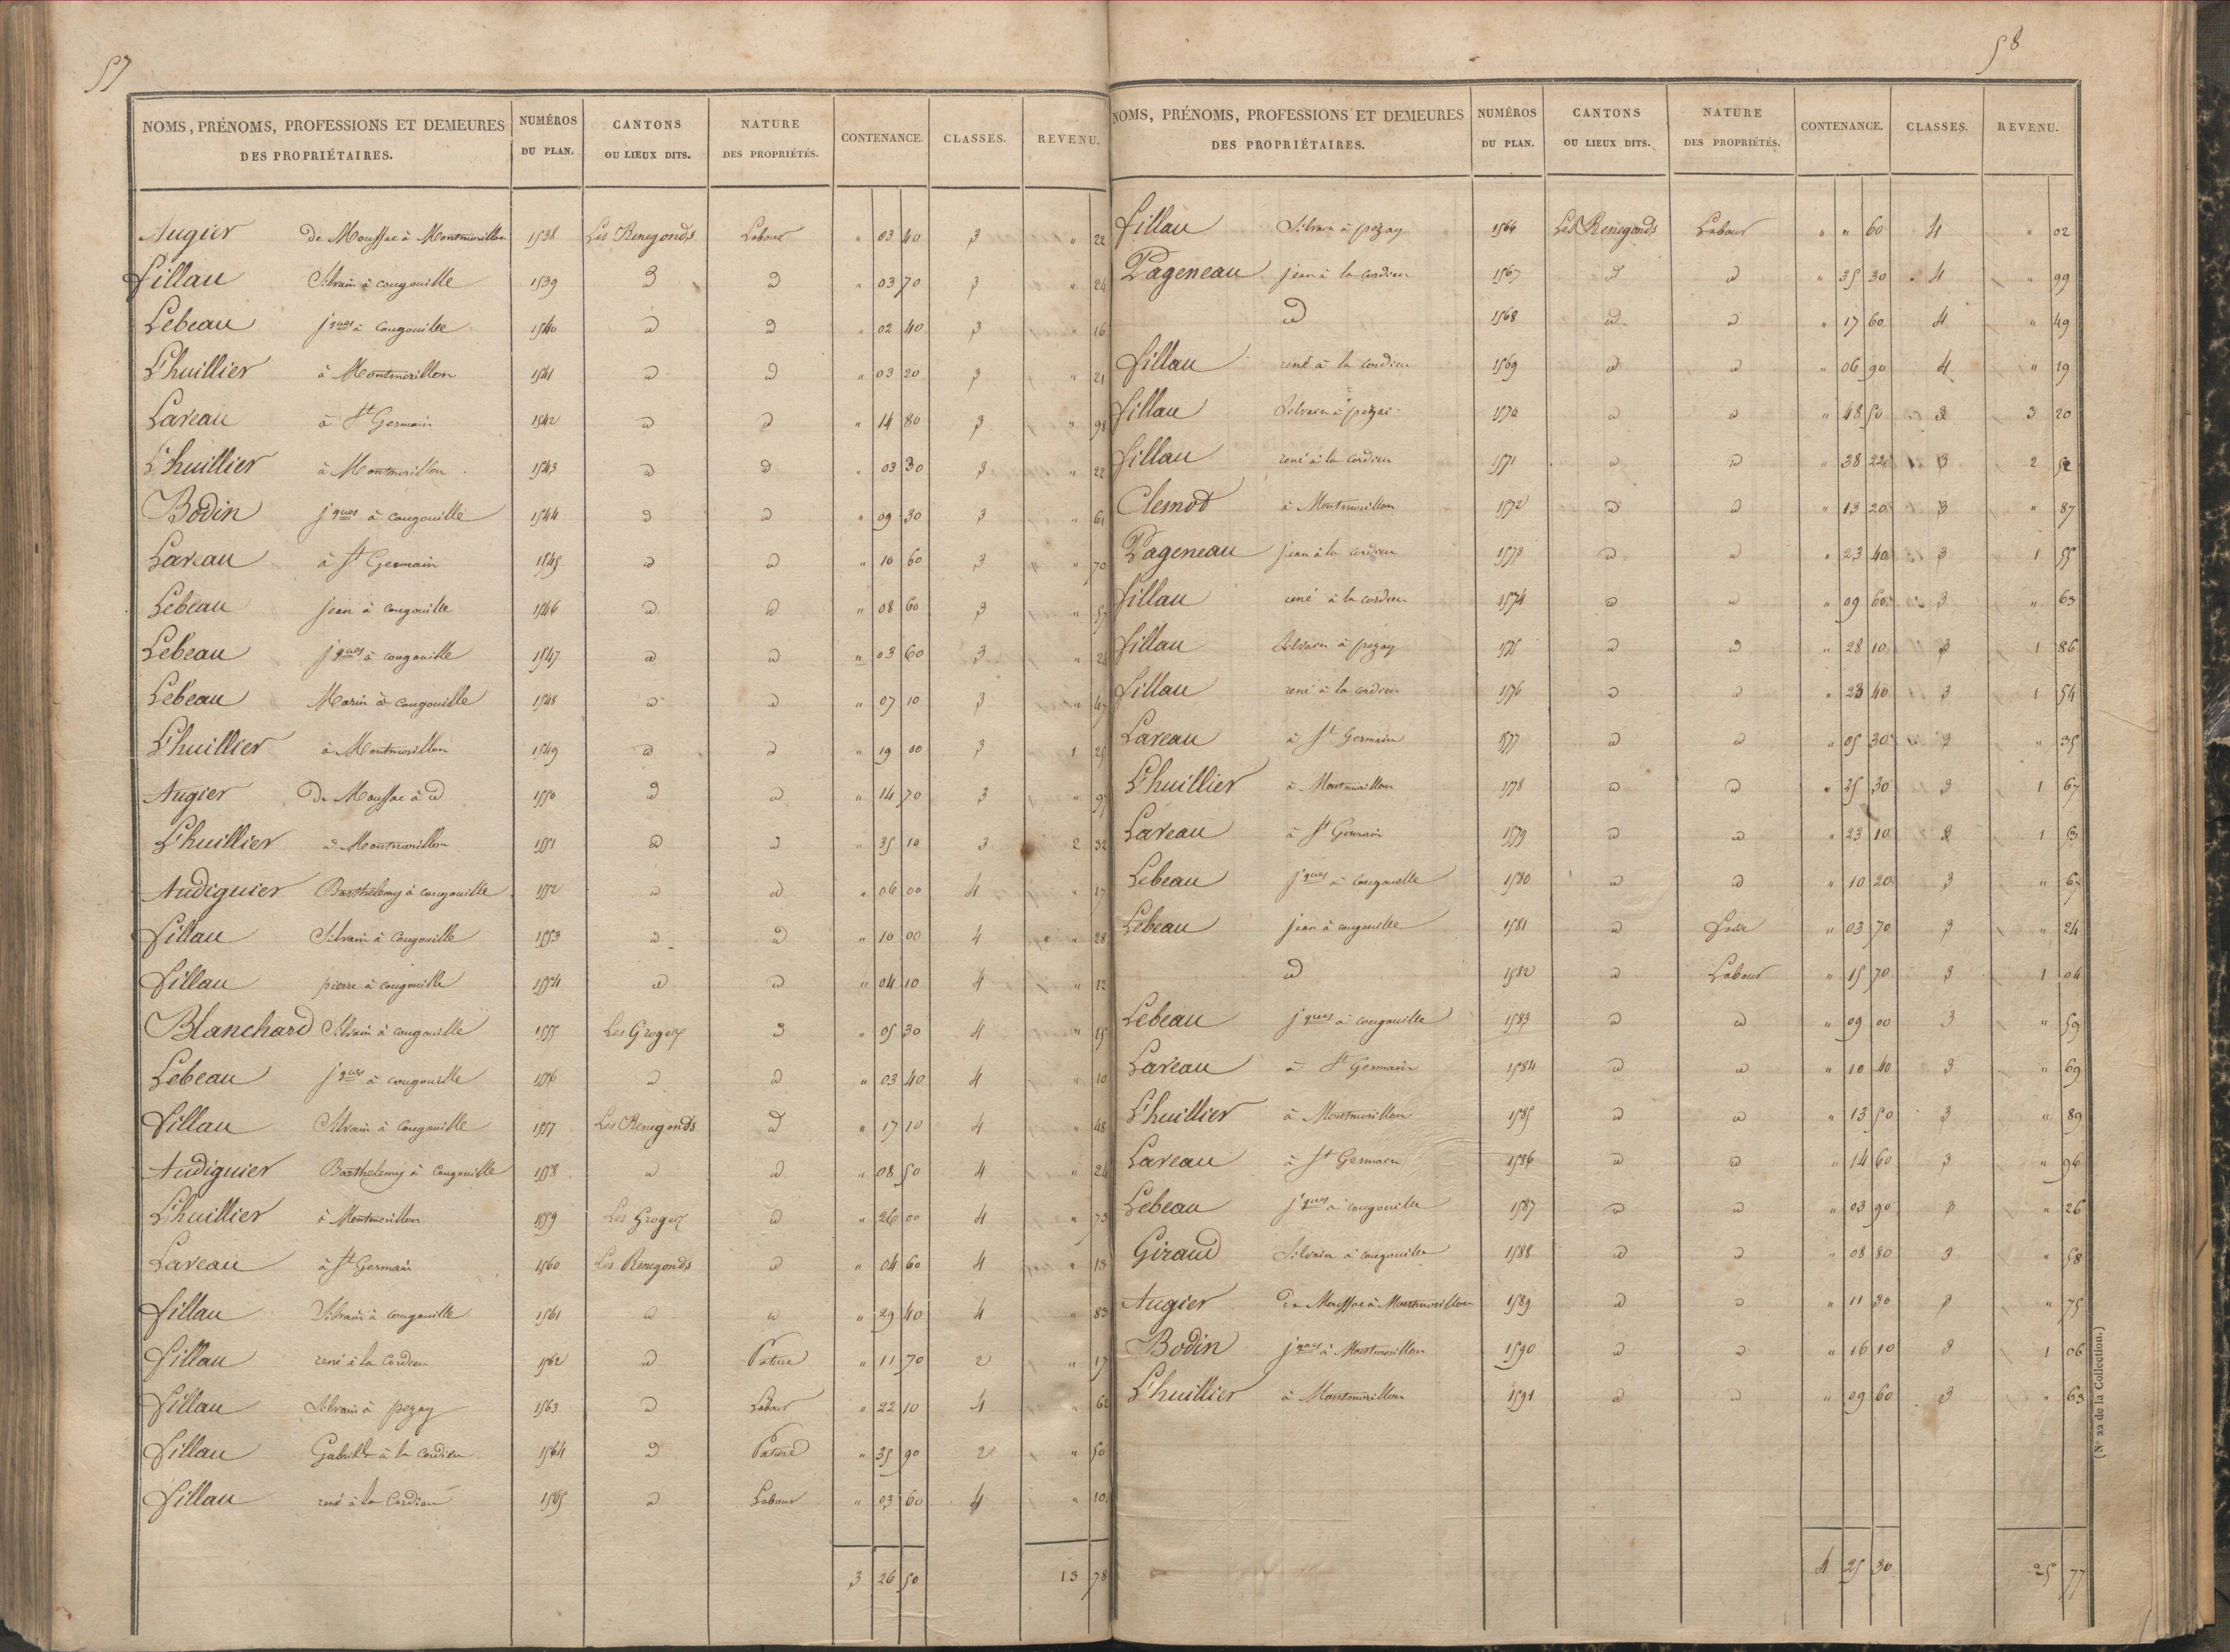 57
NOMS, PRÉNOMS, PROFESSIONS ET DEMEURES DES PROPRIÉTAIRES. NUMÉROS DU PLAN. CANTONS OU LIEUX DITS. NATURE DES PROPRIÉTÉS. CONTENANCE. CLASSES. REVENU.
Augier de Moussac à Montmorillon 1538 Les Renegonds Labour " 03 40 3 " 22
fillau Silvain à cougouille 1539 d d " 03 70 3 " 24
Lebeau jques à Cougouille 1540 d d " 02 40 3 " 16
L'huillier à Montmorillon 1541 d d " 03 20 3 " 21
Laveau à St Germain 1542 d d " 14 80 3 " 98
L'huillier à Montmorillon 1543 d d " 03 30 3 " 22
Bodin jques à cougouille 1544 d d " 09 30 3 " 61
Laveau à St Germain 1545 d d " 10 60 3 " 70
Lebeau jean à cougouille 1546 d d " 08 60 3 " 57
Lebeau jques à cougouille 1547 d d " 03 60 3 " 24
Lebeau Marin à Cougouille 1548 d d " 07 10 3 " 47
L'huillier à Montmorillon 1549 d d " 19 00 3 1 25
Augier De Moussac à d 1550 d d " 14 70 3 " 97
L'huillier à Montmorillon 1551 d d " 35 10 3 2 32
Audiguier Barthelemy à cougouille 1552 d d " 06 00 4 " 17
fillau Silvain à Cougouille 1553 d d " 10 00 4 " 28
fillau pierre à cougouille 1554 d d " 04 10 4 " 12
Blanchard Silvain à cougouille 1555 Les Groges d " 05 30 4 " 15
Lebeau jques à cougouille 1556 d d " 03 40 4 " 10
fillau Silvain à Cougouille 1557 Les Renegonds d " 17 10 4 " 48
Audiguier Barthelemy à Cougouille 1558 d d " 08 50 4 " 24
L'huillier à Montmorillon 1559 Les Groges d " 26 00 4 " 73
Laveau à St Germain 1560 Les Renegonds d " 04 60 4 " 13
fillau Silvain à cougouille 1561 d d " 29 40 4 " 83
fillau rené à la Cordieu 1562 d Pature " 11 70 2 " 17
fillau Silvain à pezay 1563 d Labour " 22 10 4 " 62
fillau Gabrille à la Cordieu 1564 d Pature " 35 90 2 " 50
fillau rené à la Cordieu 1565 d Labour " 03 60 4 " 10
3 26 50 13 78
58
NOMS, PRÉNOMS, PROFESSIONS ET DEMEURES DES PROPRIÉTAIRES. NUMÉROS DU PLAN. CANTONS OU LIEUX DITS. NATURE DES PROPRIÉTÉS. CONTENANCE. CLASSES. REVENU.
fillau Silvain à pezay 1566 Les Renegonds Labour " " 60 4 " 02
Pageneau jean à la cordieu 1567 d d " 35 30 4 " 99
d 1568 d d " 17 60 4 " 49
fillau rené à la cordieu 1569 d d " 06 90 4 " 19
fillau Silvain à pezai 1570 d d " 48 50 3 3 20
fillau rené à la cordieu 1571 d d " 38 22 3 2 52
Clemot à Montmorillon 1572 d d " 13 20 3 " 87
Pageneau jean à la cordieu 1573 d d " 23 40 3 1 55
fillau rené à la cordieu 1574 d d " 09 60 3 " 63
fillau Silvain à pezay 1575 d d " 28 10 3 1 86
fillau rené à la cordieu 1576 d d " 23 40 3 1 54
Laveau à St Germain 1577 d d " 05 30 3 " 35
L'huillier à Montmorillon 1578 d d " 25 30 3 1 67
Laveau à St Germain 1579 d d " 23 10 3 1 53
Lebeau jques à cougouille 1580 d d " 10 20 3 " 67
Lebeau jean à cougouille 1581 d " 03 70 3 " 24
d 1582 d Labour " 15 70 3 1 04
Lebeau jques à cougouille 1583 d d " 09 00 3 " 59
Laveau à St Germain 1584 d d " 10 40 3 " 69
L'huillier à Montmorillon 1585 d d " 13 50 3 " 89
Laveau à St Germain 1586 d d " 14 60 3 " 96
Lebeau jques à cougouille 1587 d d " 03 90 3 " 26
Giraud Silvain à cougouille 1588 d d " 08 80 3 " 58
Augier De Moussac à Montmorillon 1589 d d " 11 30 3 " 75
Bodin jques à Montmorillon 1590 d d " 16 10 3 1 06
L'huillier à Montmorillon 1591 d d " 09 60 3 " 63
4 25 30 25 77
(N° 22 de la Collection.)